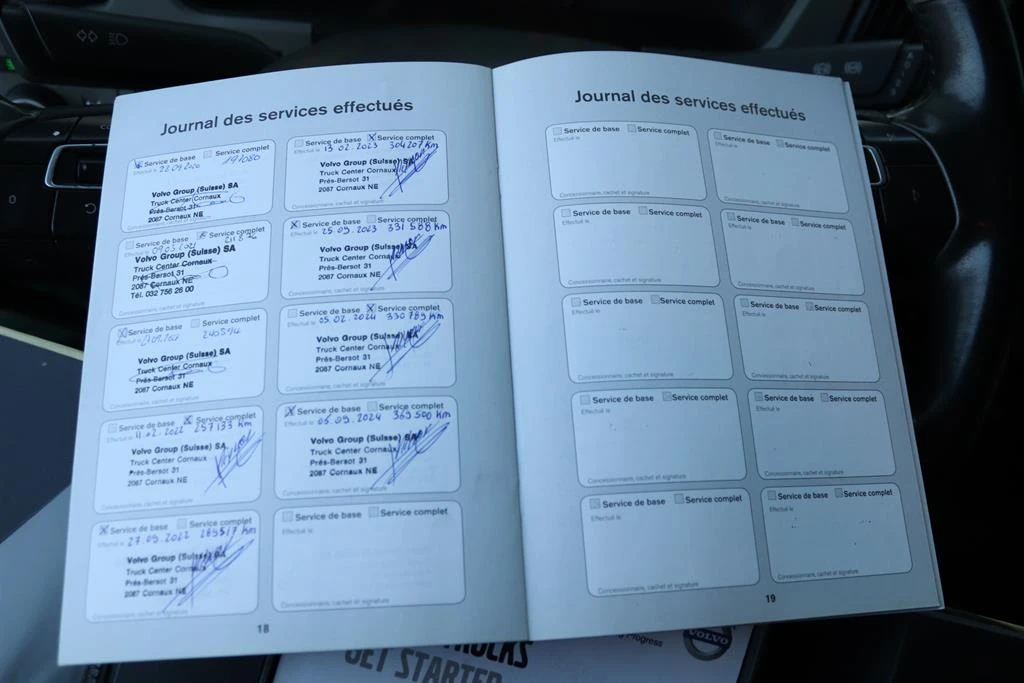 Journal des services effectués
Service de base Service complet
Effectué le 22.09.2020 191080
Volvo Group (Suisse) SA
Truck Center Cornaux
Prés-Bersot 31
2087 Cornaux NE
Concessionnaire, cachet et signature
Service de base Service complet
09.03.2021
Volvo Group (Suisse) SA
Truck Center Cornaux
Prés-Bersot 31
2087 Cornaux NE
Tél. 032 756 26 00
Service de base Service complet
Effectué le
Volvo Group (Suisse) SA
Truck Center Cornaux
Prés-Bersot 31
2087 Cornaux NE
Concessionnaire, cachet et signature
Service de base Service complet
Effectué le 11.02.2022 257133 km
Volvo Group (Suisse) SA
Truck Center Cornaux
Prés-Bersot 31
2087 Cornaux NE
Concessionnaire, cachet et signature
Service de base Service complet
Effectué le 27.09.2022 289517 km
Volvo Group (Suisse) SA
Truck Center Cornaux
Prés-Bersot 31
2087 Cornaux NE
Concessionnaire, cachet et signature
Service de base Service complet
Effectué le 13.02.2023 304207 km
Volvo Group (Suisse) SA
Truck Center Cornaux
Prés-Bersot 31
2087 Cornaux NE
Concessionnaire, cachet et signature
Service de base Service complet
Effectué le 25.09.2023 331588 km
Volvo Group (Suisse) SA
Truck Center Cornaux
Prés-Bersot 31
2087 Cornaux NE
Concessionnaire, cachet et signature
Service de base Service complet
Effectué le 05.02.2024 330789 km
Volvo Group (Suisse) SA
Truck Center Cornaux
Prés-Bersot 31
2087 Cornaux NE
Concessionnaire, cachet et signature
Service de base Service complet
Effectué le 05.09.2024 363500 km
Volvo Group (Suisse) SA
Truck Center Cornaux
Prés-Bersot 31
2087 Cornaux NE
Concessionnaire, cachet et signature
Service de base Service complet
Effectué le
Concessionnaire, cachet et signature
18
Journal des services effectués
Service de base Service complet
Effectué le
Concessionnaire, cachet et signature
Service de base Service complet
Effectué le
Concessionnaire, cachet et signature
Service de base Service complet
Effectué le
Concessionnaire, cachet et signature
Service de base Service complet
Effectué le
Concessionnaire, cachet et signature
Service de base Service complet
Effectué le
Concessionnaire, cachet et signature
Service de base Service complet
Effectué le
Concessionnaire, cachet et signature
Service de base Service complet
Effectué le
Concessionnaire, cachet et signature
Service de base Service complet
Effectué le
Concessionnaire, cachet et signature
Service de base Service complet
Effectué le
Concessionnaire, cachet et signature
Service de base Service complet
Effectué le
Concessionnaire, cachet et signature
19
Progress
VOLVO
GET STARTED